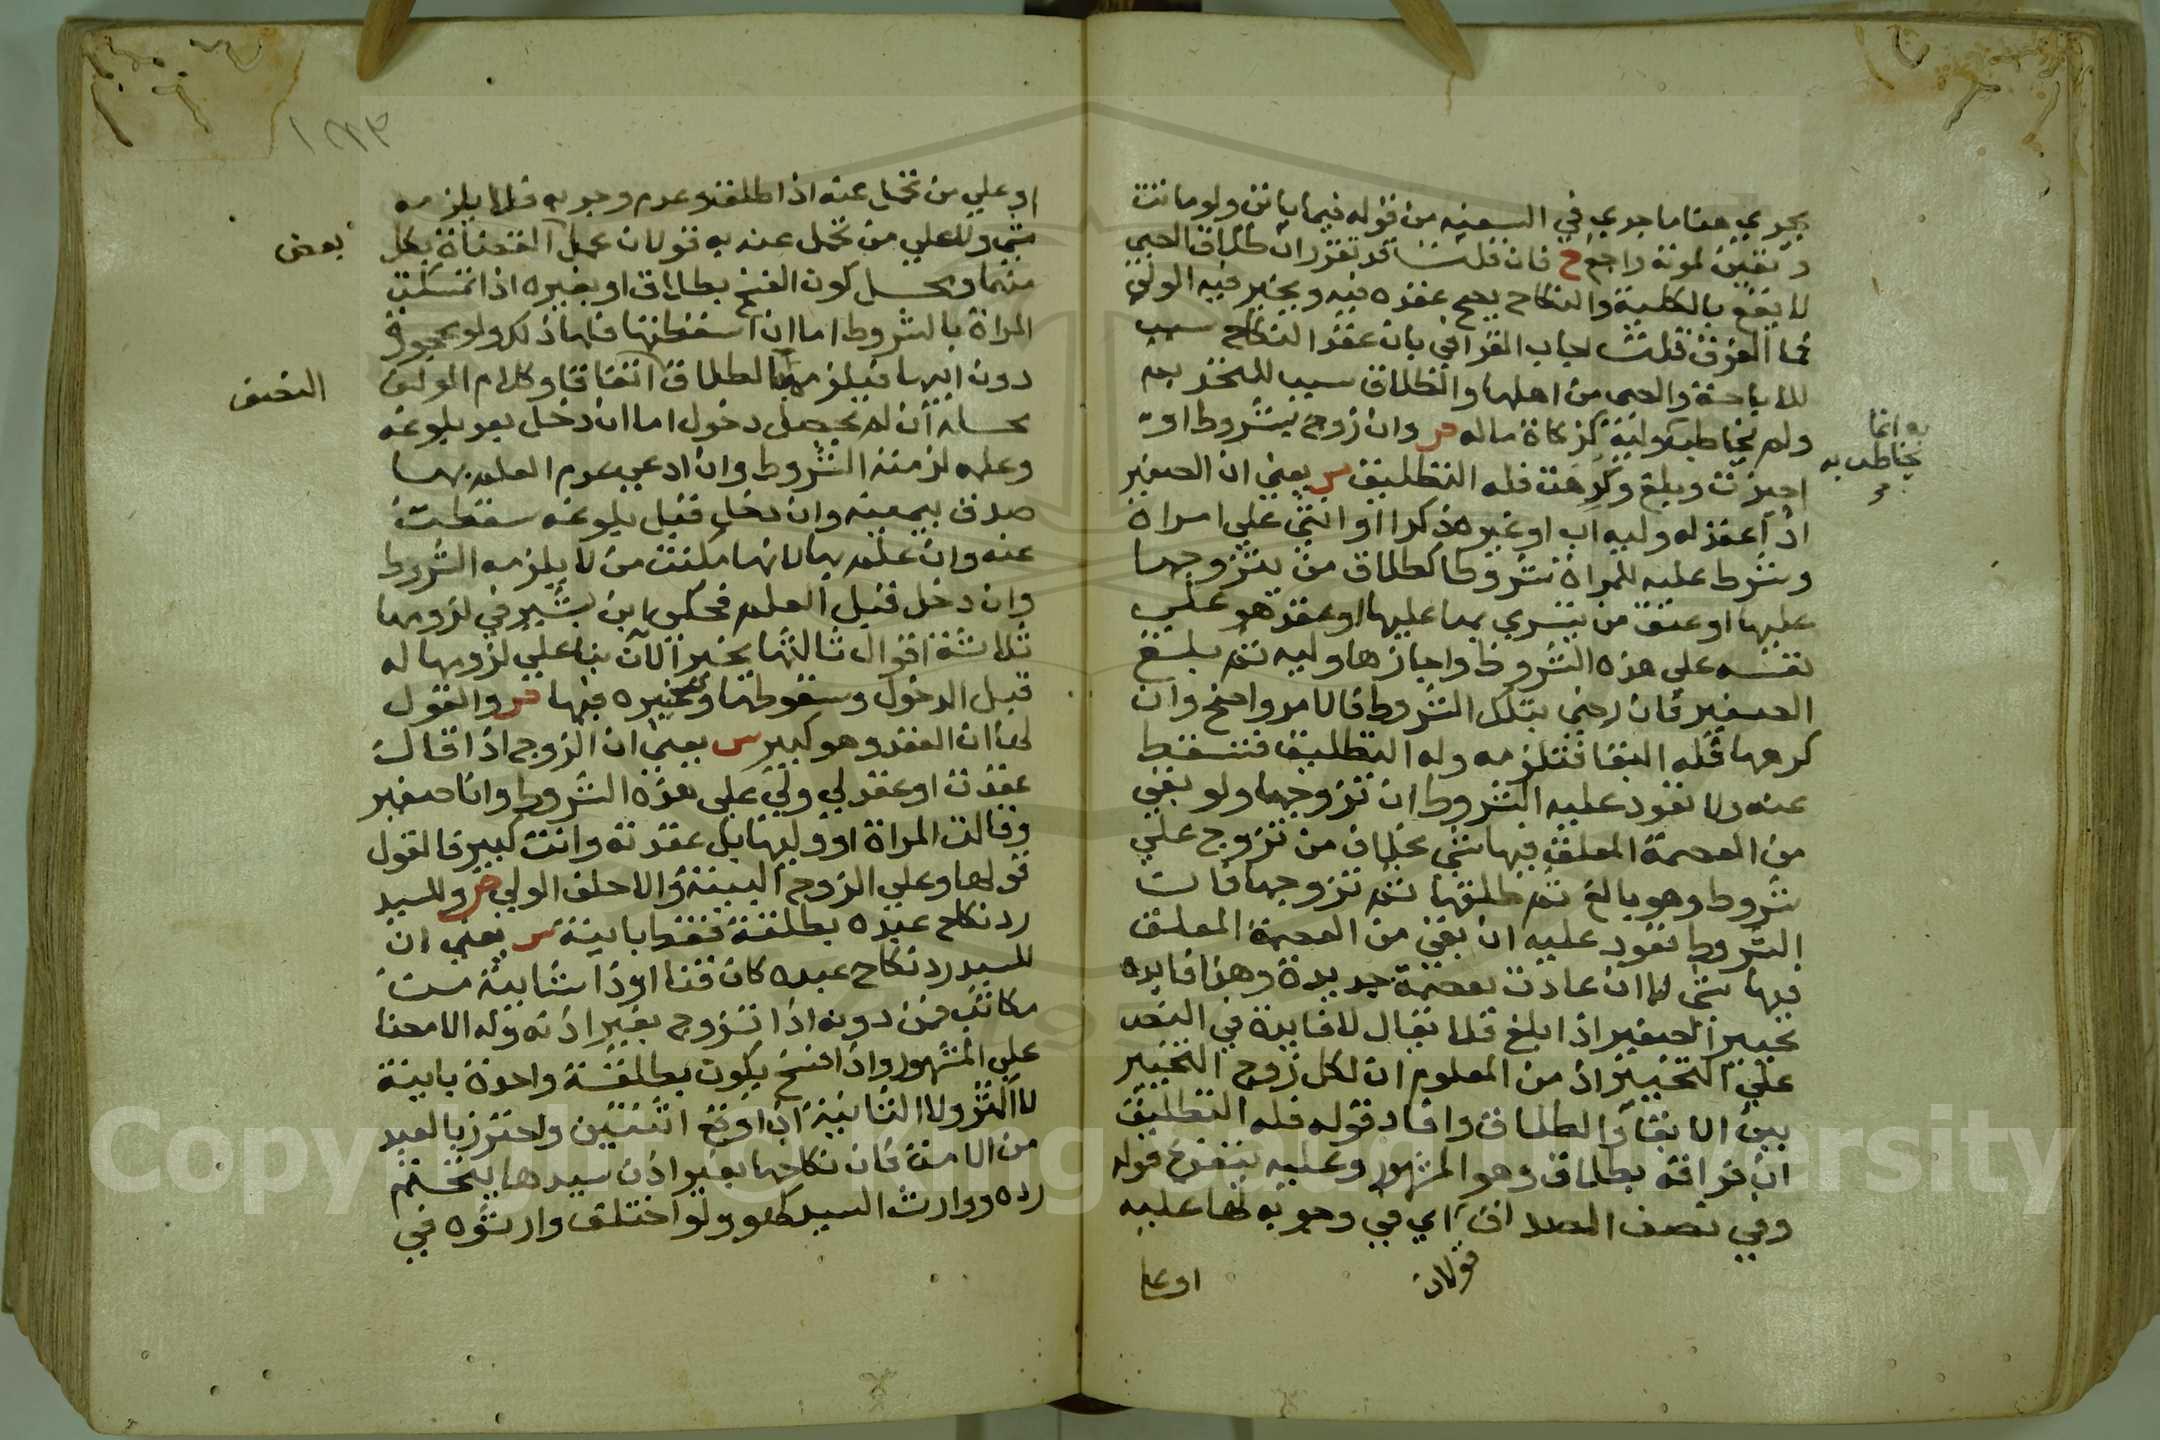 يجري هنا ما جري في السفيه من قوله فيما باتن ولو ماتت
وتعين لموته راجع ح فان قلت قد تقرر ان طلاق الصبي
لا يقع بالكلية والنكاح يصح عقده فيه ويخير فيه الولي
فما الفرق قلت اجاب القرافي بان عقد النكاح سبب
للاباحة والصبي من اهلها والطلاق سبب للتحريم
ولم يخاطب كوليه كزكاة ماله ص وان زوج بشروط او
به انما
يخاطب به
اجيزت وبلغ وكره فله التطليق س يعني ان الصغير
اذا عقد له وليه اب او غيره ذكرا او انثي علي امراة
وشرط عليه للمراة شروطا كطلاق من يتزوجها
عليها او عتق من يتسري بها عليها او عقد هو علي
نفسه علي هذه الشروط واجازها وليه ثم بلغ
الصغير فان رضي بتلك الشروط فالامر واضح وان
كرهها فله البقا فتلزمه وله التطليق فتسقط
عنه ولا تعود عليه الشروط ان تزوجها ولو بقي
من العصمة المعلق فيها شي بخلاف من تزوج علي
شروط وهو بالغ ثم طلقها ثم تزوجها فان
الشروط تعود عليه ان بقي من العصمة المعلق
فيها شي لا ان عادت بعصمة جديدة وهذا فايده
تخيير الصغير اذا بلغ فلا يقال لا فايدة في النص
علي التخيير اذ من المعلوم ان لكل زوج التخيير
بين الابقا والطلاق وافاد قوله فله التطليق
ان فراقه بطلاق وهو المشهور وعليه يتفرع قوله
وفي نصف الصداق اي في وجوبه لها عليه
قولان
او علي
١٦٣
او علي من تحمل عنه اذا طلقه وعدم وجوبه فلا يلزمه
شي ولا علي من تحمل عنه به قولان عمل القضاة بكل
بعض
منهما ومحل كون الفسخ بطلاق او بغيره اذا تمسكت
المراة بالشروط اما ان اسقطتها فلها ذلك ولو محجورة
دون ابيها فيلزمها الطلاق اتفاقا وكلام المولف
النصف
محله ان لم يحصل دخول اما ان دخل بعد بلوغه
وعلمه لزمته الشروط وان ادعي عدم العلم بها
صدق بيمينه وان دخل قبل بلوغه سقطت
عنه وان علم بها لانها مكنت من لا يلزمه الشروط
وان دخل قبل العلم فحكي ابن بشير في لزومها
ثلاثة اقوال ثالثها يخير الآن بناء علي لزومها له
قبل الدخول وسقوطها وتخييره فيها ص والقول
لها ان العقد وهو كبير س يعني ان الزوج اذا قال
عقدت او عقد لي وليي علي هذه الشروط وانا صغير
وقالت المراة او وليها بل عقدته وانت كبير فالقول
قولها وعلي الزوج البينة والا حلف الولي ص وللسيد
رد نكاح عبده بطلقة فقط باينة س يعني ان
للسيد رد نكاح عبده كان قنا او ذا شايبة من
مكاتب فمن دونه اذا تزوج بغير اذنه وله الامضا
علي المشهور واذا فسخ يكون بطلقة واحدة باينة
لا اكثر ولا الثانية ان اوقع اثنتين واحترز بالعبد
من الامة فان نكاحها بغير اذن سيدها يتحتم
رده ووارث السيد كهو ولو اختلف وارثوه في